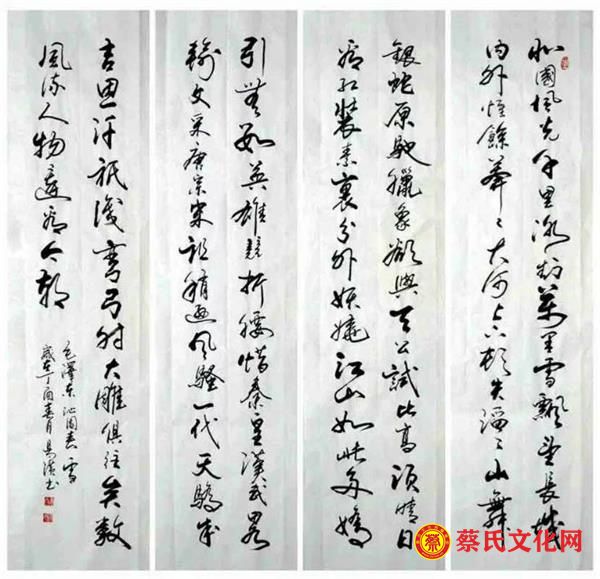 北國風光千里冰封萬里雪飄望長城
内外惟餘莽〻大河上下頓失滔〻山舞
銀蛇原馳蠟象欲與天公試比高須晴日
看红裝素裹分外妖嬈江山如此多嬌
引無數英雄競折腰惜秦皇漢武略
輸文采唐宗宋祖稍遜風騷一代天驕成
吉思汗祇識彎弓射大雕俱往矣數
風流人物還看今朝
毛澤東沁園春雪
歲在丁酉春月 书
蔡氏文化网